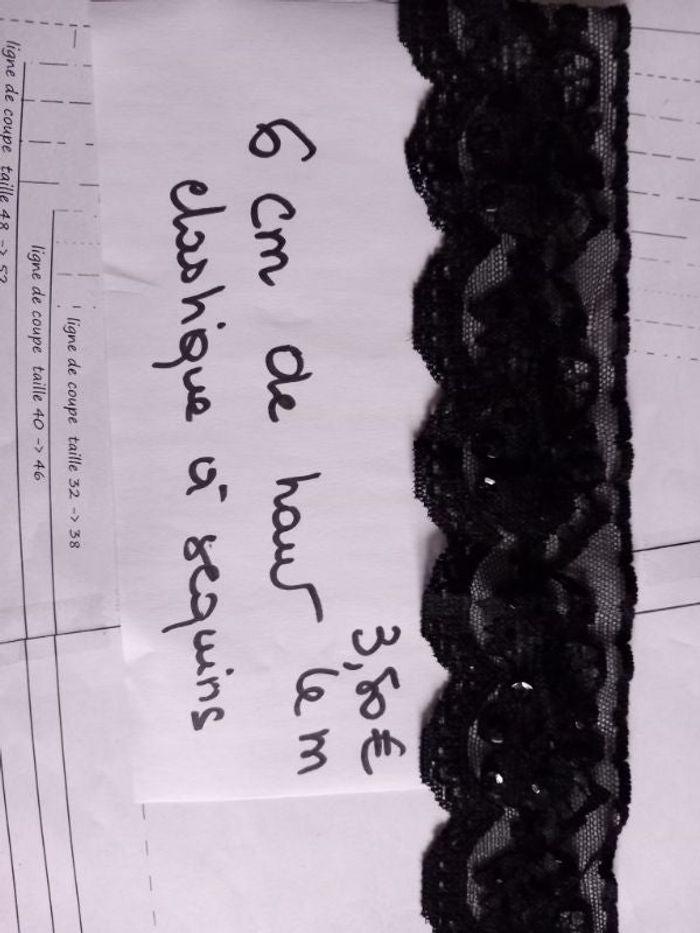 3,50€
6 cm de haut le m
elastique à sequins
ligne de coupe taille 32 -> 38
ligne de coupe taille 40 -> 46
ligne de coupe taille 48 -> 52